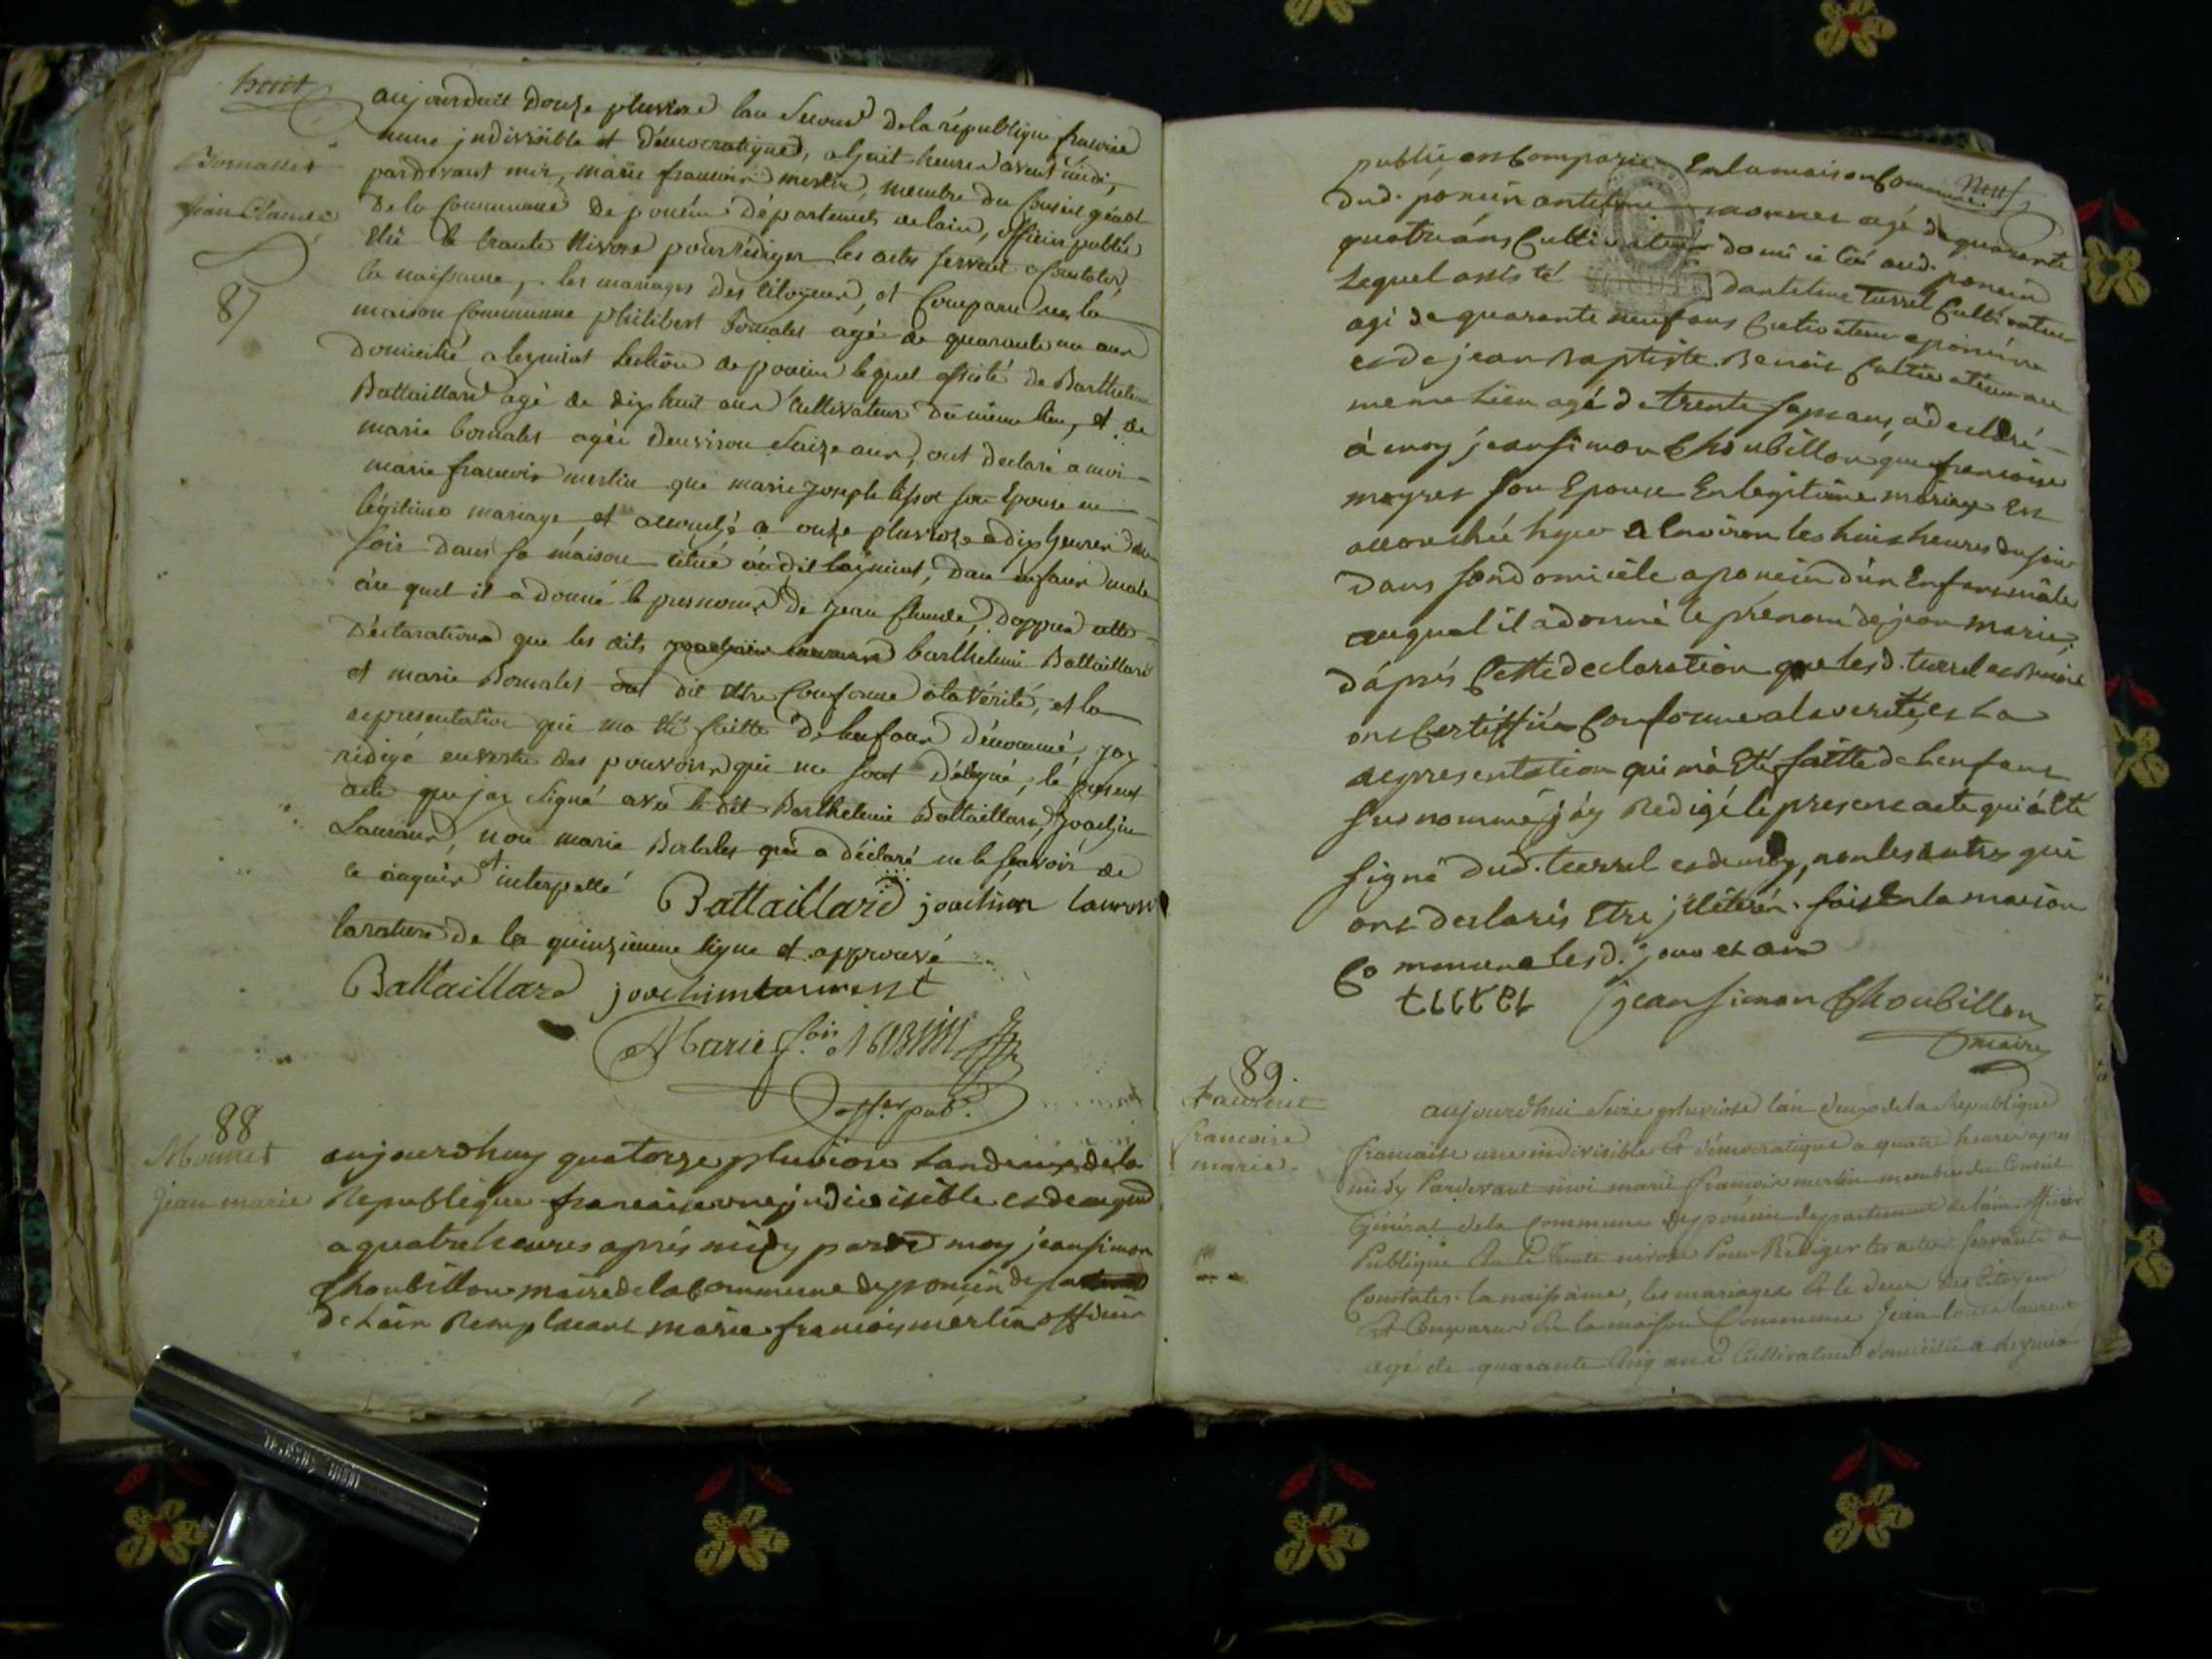 huit
aujourduit douze pluviose lan Second de la république francoise
nune indivisible et démocratique, a huit heures avant midi,
pardevant moi, marie francois merlin, membre du Conseil géral
de la Commune de poncin département de lain, officier public
élu le trante Nivose pour rédiger les actes servant a Constater
la naissance, les mariages des citoyens, et Comparu en la
maison Commune philibert Bomales agé de quarante un ans
domicilié a leymiat Section de poncin lequel assisté de Barthelemi
Battaillard agé de dix huit ans Cultivateur du même lieu, et de
marie bomales agée denviron Saize ans, ont declaré a moi
marie francois merlin que marie Joseph son Epouse en
légitime mariage, et accouché a onze pluviose a dix heures du
soir dans sa maison situé audit leymiat, dun enfant male
au quel il a donné le presnoms de jean Claude, dapprès cette
déclaration que les dits barthelemi Battaillard
et marie Bomales ont dit être Conforme a la vérité, et la
représentation qui ma été faitte de lenfant dénommé, jay
rédigé en vertu des pouvoirs qui me sont délégué, le présent
acte que jay signé avec le dit Barthelemi Battaillard, Joachin
Lauran, non marie qui a déclaré ne le scavoir de
ce anquir et interpellé Battaillard joachim lauran
la rature de la quinzieme ligne et approuvé
Battaillard joachim laurent
Marie fois Merlin
offer pub.
Bomalles
jean Claude
87
88
Monnet
jean marie
aujourdhuy quatorze pluviose lan deux de la
Republique francaise une jndivisible et
a quatre heures aprés midy par moy jean simon
Choubillon maire de la Commune de poncin
de Lain Remplacant marie francois merlin officier
neuf
public est Comparu En la maison Commune
dud. poncin antelme monnet agé de quarante
quatre ans Cultivateur domicilié aud. poncin
Lequel assisté dantelme turrel Cultivateur
agé de quarante neuf ans Cultivateur a poncin
et de jean Baptiste Benoit Cultivateur au
meme Lieu agé de trente sept ans, a declaré
à moy jean simon Choubillon que francoise
son Epouse En legitime mariage Est
accouchée hyer a Lenviron les huit heures du soir
dans son domicile a poncin d'un Enfant mâle
auquel il a donné le prénom de jean marie,
d'aprés Cette declaration que lesd. turrel et Benoit
ont Certiffiée Conforme a la verité, et La
representation qui m'a Eté faitte de Lenfant
susnommé j'ay Redigé le present acte qui a été
signé dud. turrel et de moy, non les autres qui
ont declarés Etre jlliterés. fait En la maison
Commune lesd. jour et an
turrel jean simon Choubillon
maire
89.
Laurent
francoise
marie.
aujourdhui Seize pluviose lan deux de la Republique
francaise une indivisible et démocratique a quatre heures apres
midy Pardevant moi marie francois merlin membre du Conseil
Général de la Commune de poncin departement de lain officier
Publique élu le trante nivose Pour Rediger les actes servants a
Constater la naissance, les mariages et le deces des Citoyens
Et Comparu En la maison Commune jean laurent
agé de quarante cinq ans Cultivateur domicilié a leymiat